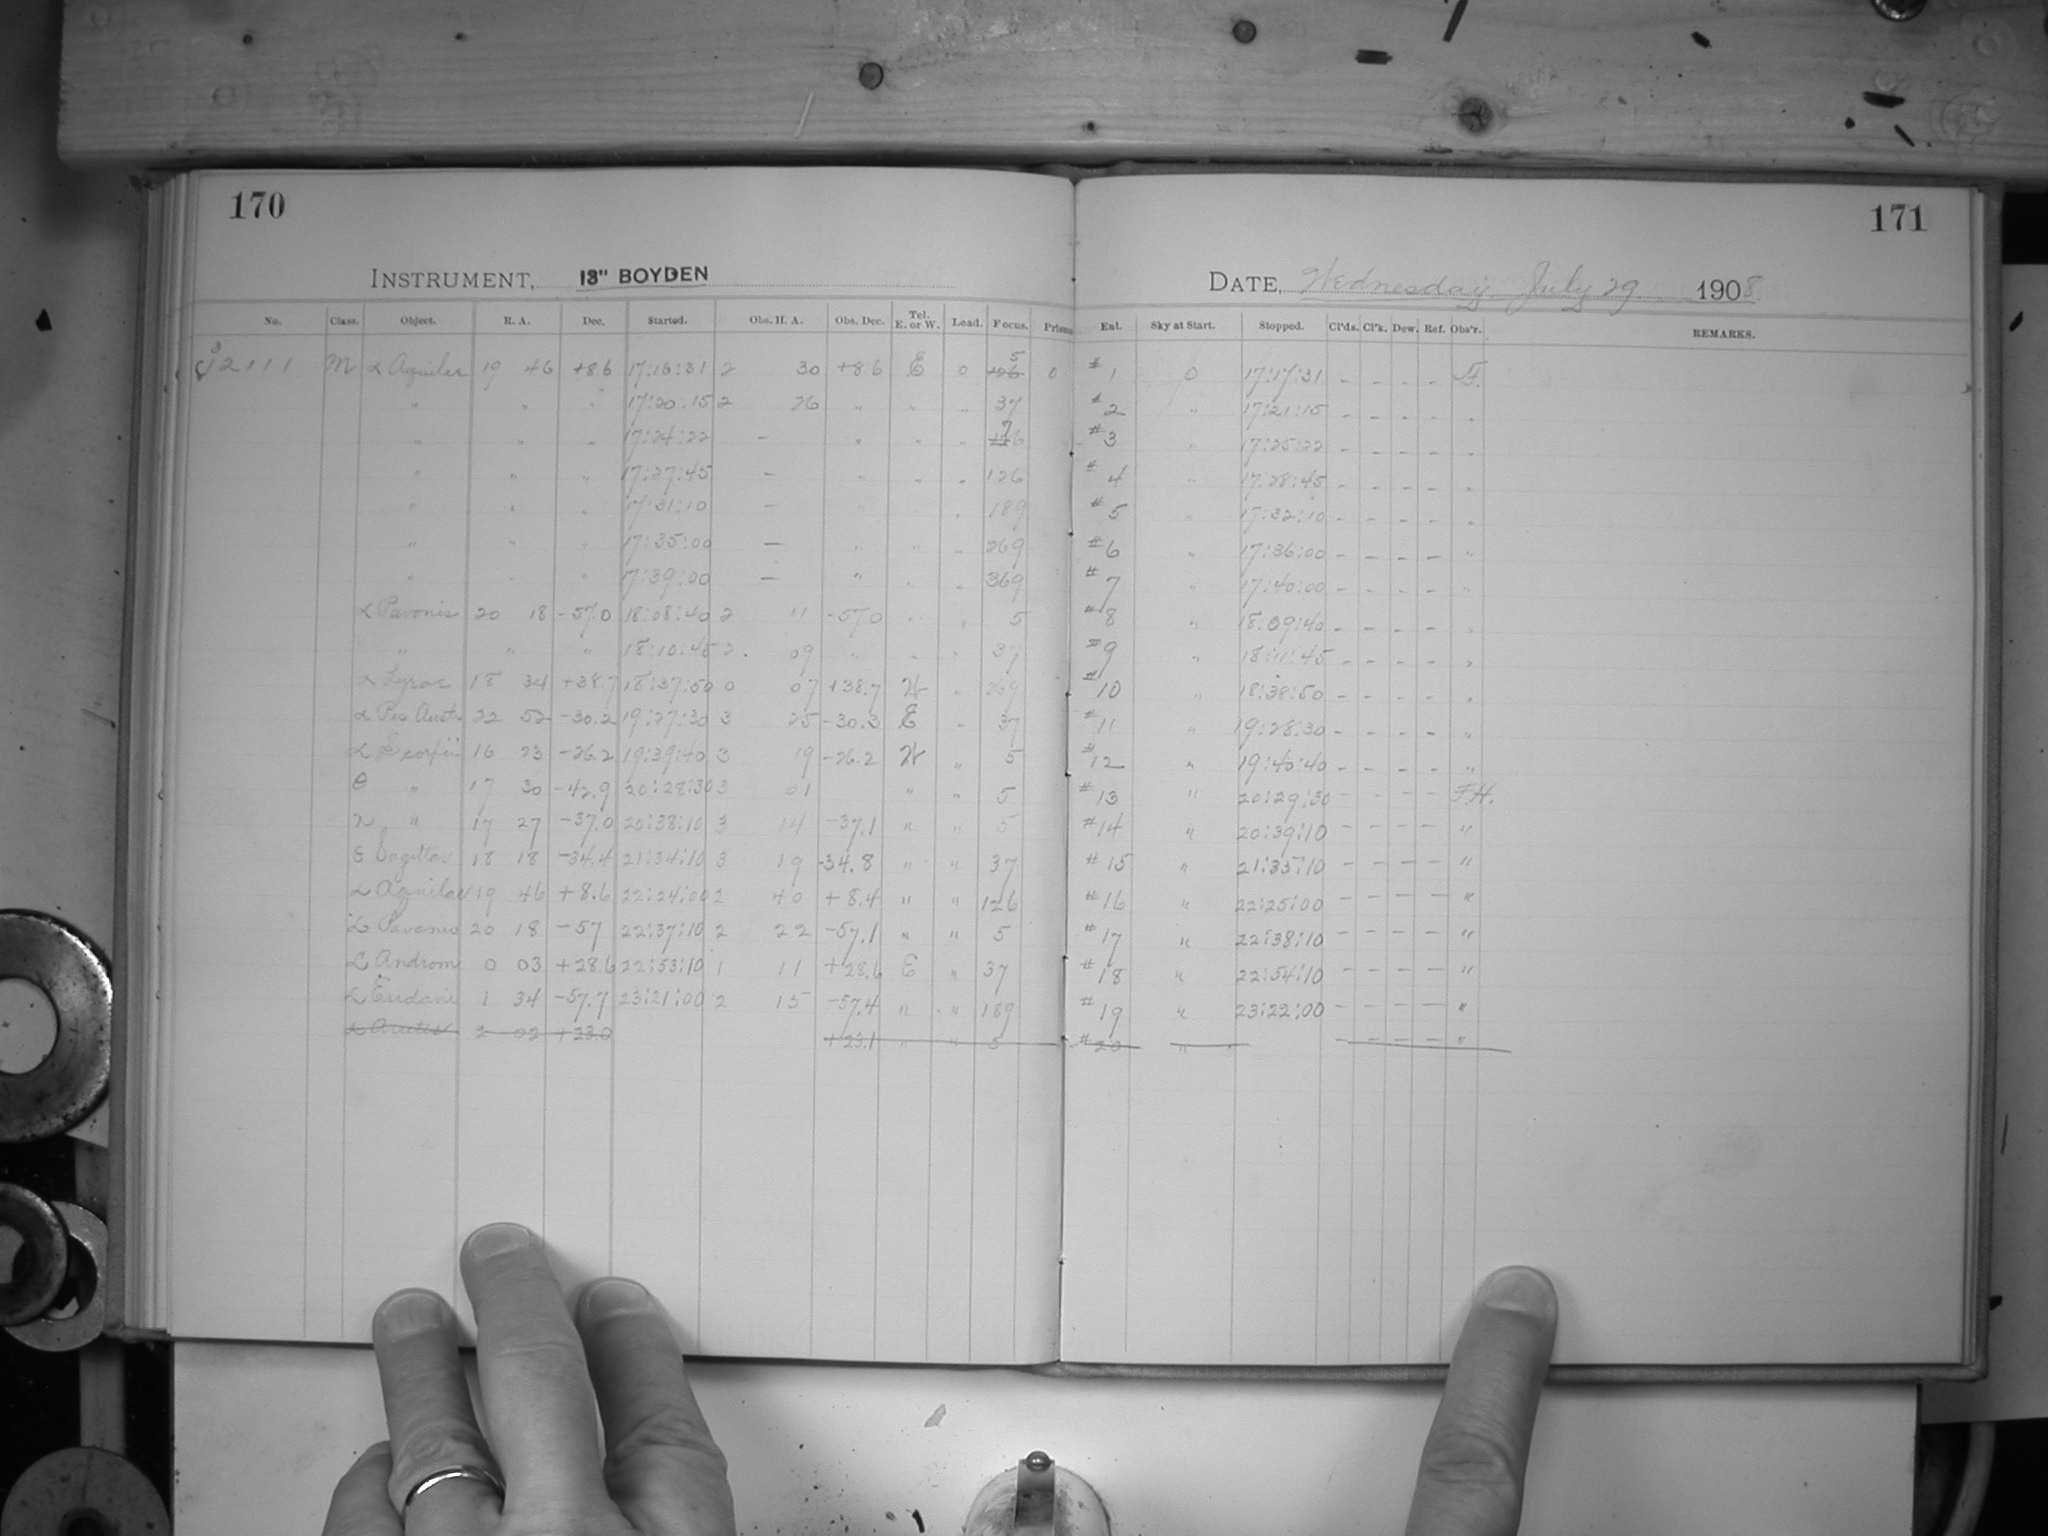 170
INSTRUMENT, 13" BOYDEN
No. Class. Object. R. A. Dec. Started. Obs. H. A. Obs. Dec. Tel. E. or W. Load. Focus. Prisms
32111 M α Aquilae 19 46 +8.6 17:16:31 2 30 +8.6 E 0 5 0
" " " 17:20:15 2 26 " " " 37
" " " 17:24:22 – " " " 7
" " " 17:27:45 – " " " 126
" " " 17:31:10 – " " " 189
" " " 17:35:00 – " " " 269
" " " 17:39:00 – " " " 369
α Pavonis 20 18 -57.0 18:08:40 2 11 -57.0 " " 5
" " " 18:10:45 2 09 " " " 37
α Lyrae 18 34 +38.7 18:37:50 0 07 +38.7 W " 269
α Pis Austr 22 52 -30.2 19:27:30 3 25 -30.3 E " 37
α Scorpii 16 23 -26.2 19:39:40 3 19 -26.2 W " 5
θ " 17 30 -42.9 20:28:30 3 01 " " 5
" 17 27 -37.0 20:38:10 3 14 -37.1 " " 5
ε Sagittar 18 18 -34.4 21:34:10 3 19 -34.8 " " 37
α Aquilae 19 46 +8.6 22:24:00 2 40 +8.4 " " 126
α Pavonis 20 18 -57 22:37:10 2 22 -57.1 " " 5
α Androm 0 03 +28.6 22:53:10 1 11 +28.6 E " 37
α Eridani 1 34 -57.7 23:21:00 2 15 -57.4 " " 189
α Arietis 2 02 +23.0 +23.1 " " 5
171
DATE, Wednesday, July 29. 1908.
Ext. Sky at Start. Stopped. Cl'ds. Cl'k. Dew. Ref. Obs'r. REMARKS.
#1 0 17:17:31 – – – – F.
#2 " 17:21:15 – – – – "
#3 " 17:25:22 – – – – "
#4 " 17:28:45 – – – – "
#5 " 17:32:10 – – – – "
#6 " 17:36:00 – – – – "
#7 " 17:40:00 – – – – "
#8 " 18:09:40 – – – – "
#9 " 18:11:45 – – – – "
#10 " 18:38:50 – – – – "
#11 " 19:28:30 – – – – "
#12 " 19:40:40 – – – – "
#13 " 20:29:30 – – – – F.H.
#14 " 20:39:10 – – – – "
#15 " 21:35:10 – – – – "
#16 " 22:25:00 – – – – "
#17 " 22:38:10 – – – – "
#18 " 22:54:10 – – – – "
#19 " 23:22:00 – – – – "
#20 " " – – – – "